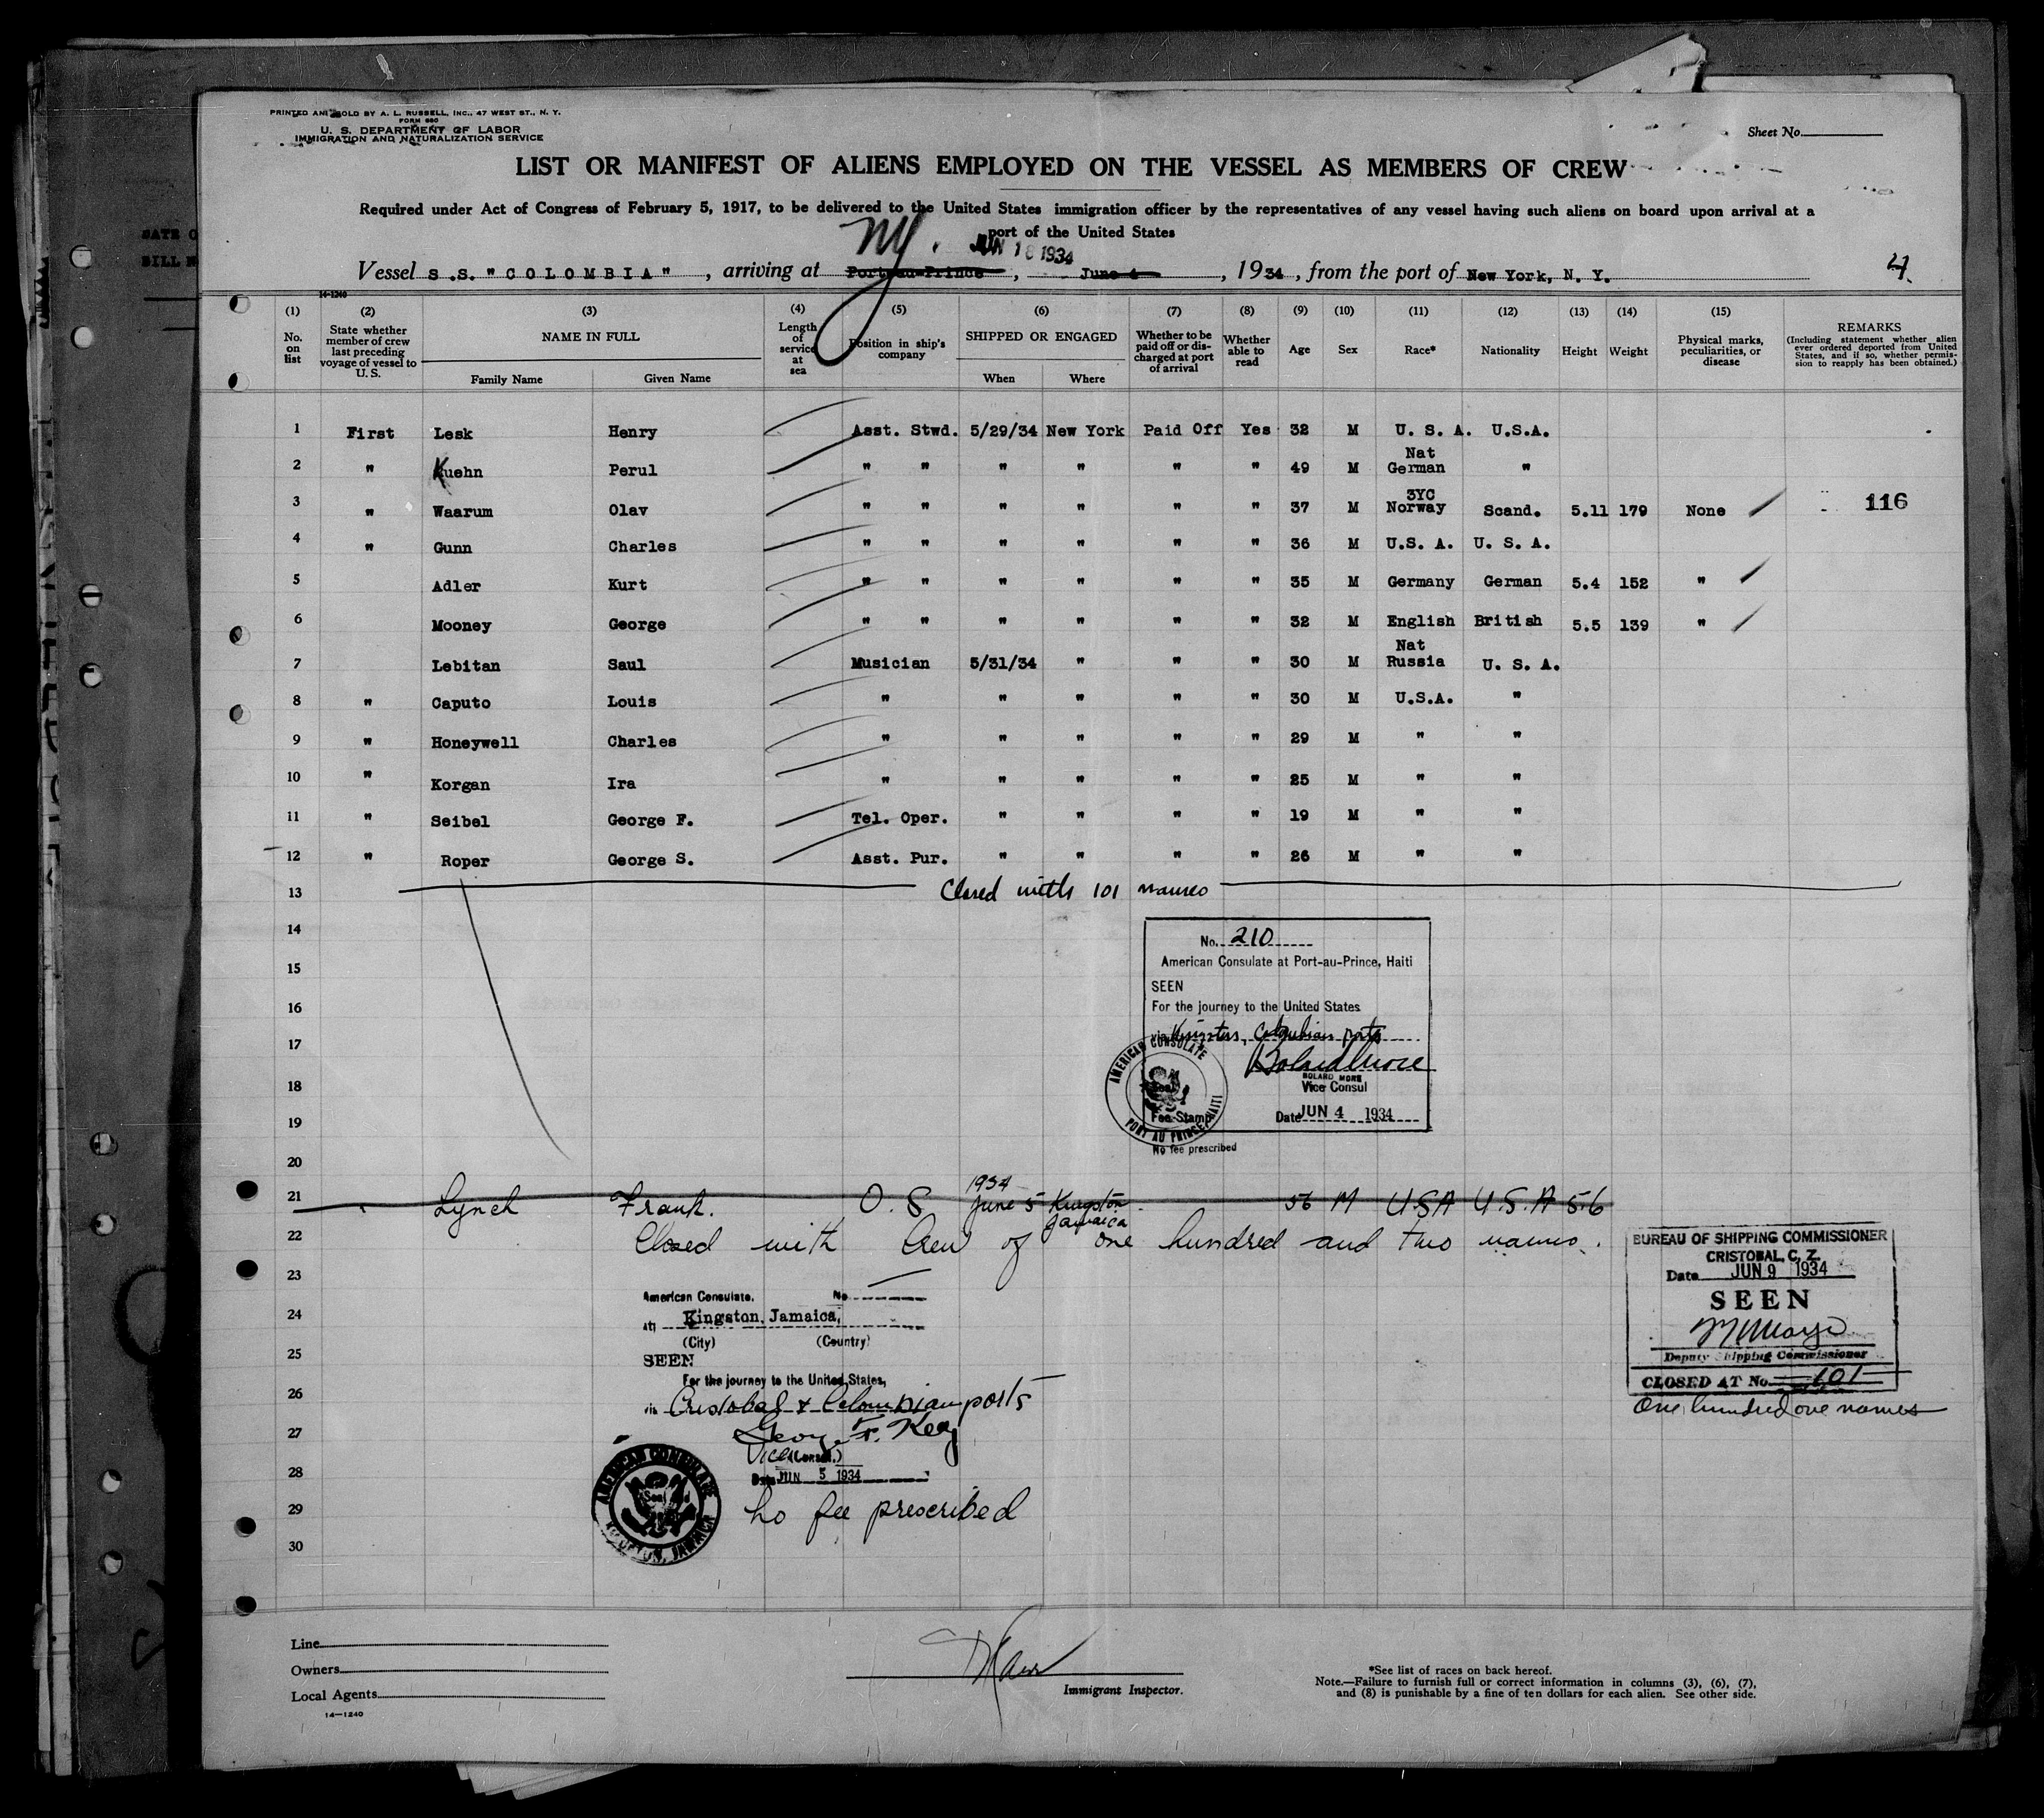 PRINTED AND SOLD BY A. L. RUSSELL, INC., 47 WEST ST., N. Y.
FORM 680
U. S. DEPARTMENT OF LABOR
IMMIGRATION AND NATURALIZATION SERVICE
Sheet No.
LIST OR MANIFEST OF ALIENS EMPLOYED ON THE VESSEL AS MEMBERS OF CREW
Required under Act of Congress of February 5, 1917, to be delivered to the United States immigration officer by the representatives of any vessel having such aliens on board upon arrival at a
port of the United States
NY. JUN 18 1934
Vessel S.S. "COLOMBIA", arriving at Port-au-Prince, June 4, 1934, from the port of New York, N. Y. 4.
14-1240
(1) No. on list
(2) State whether member of crew last preceding voyage of vessel to U. S.
(3) NAME IN FULL Family Name Given Name
(4) Length of service at sea
(5) Position in ship's company
(6) SHIPPED OR ENGAGED When Where
(7) Whether to be paid off or discharged at port of arrival
(8) Whether able to read
(9) Age
(10) Sex
(11) Race*
(12) Nationality
(13) Height
(14) Weight
(15) Physical marks, peculiarities, or disease
REMARKS (Including statement whether alien ever ordered deported from United States, and if so, whether permission to reapply has been obtained.)
1 First Lesk Henry Asst. Stwd. 5/29/34 New York Paid Off Yes 32 M U. S. A. U.S.A.
2 " Kuehn Perul " " " " " " 49 M Nat German "
3 " Waarum Olav " " " " " " 37 M 3YC Norway Scand. 5.11 179 None 116
4 " Gunn Charles " " " " " " 36 M U.S. A. U. S. A.
5 Adler Kurt " " " " " " 35 M Germany German 5.4 152 "
6 Mooney George " " " " " " 32 M English British 5.5 139 "
7 Lebitan Saul Musician 5/31/34 " " " 30 M Nat Russia U. S. A.
8 " Caputo Louis " " " " " 30 M U.S.A. "
9 " Honeywell Charles " " " " " 29 M " "
10 " Korgan Ira " " " " " 25 M " "
11 " Seibel George F. Tel. Oper. " " " " 19 M " "
12 " Roper George S. Asst. Pur. " " " " 26 M " "
13 Closed with 101 names
14
No. 210
American Consulate at Port-au-Prince, Haiti
15
SEEN
16
For the journey to the United States
via Kingston, Colombian ports
17
AMERICAN CONSULATE PORT AU PRINCE, HAITI
BOLARD MORE
18
Vice Consul
19
Fee Stamp
Date JUN 4 1934
No fee prescribed
20
21 Lynch Frank. O. S 1934 June 5 Kingston Jamaica 56 M USA U.S.A 5.6
22 Closed with Crew of one hundred and two names.
23
American Consulate. No
24
at Kingston, Jamaica,
(City) (Country)
25
SEEN
For the journey to the United States,
26
via Cristobal & Colombian ports
27
Geo. F. Kelly
Vice (Consul.)
28
Date JUN 5 1934
AMERICAN CONSULATE KINGSTON, JAMAICA
29
No fee prescribed
30
BUREAU OF SHIPPING COMMISSIONER
CRISTOBAL, C. Z.
Date JUN 9 1934
SEEN
Deputy Shipping Commissioner
CLOSED AT No. 101
One hundred one names
Line
Owners
Local Agents
14—1240
Immigrant Inspector.
*See list of races on back hereof.
Note.—Failure to furnish full or correct information in columns (3), (6), (7),
and (8) is punishable by a fine of ten dollars for each alien. See other side.